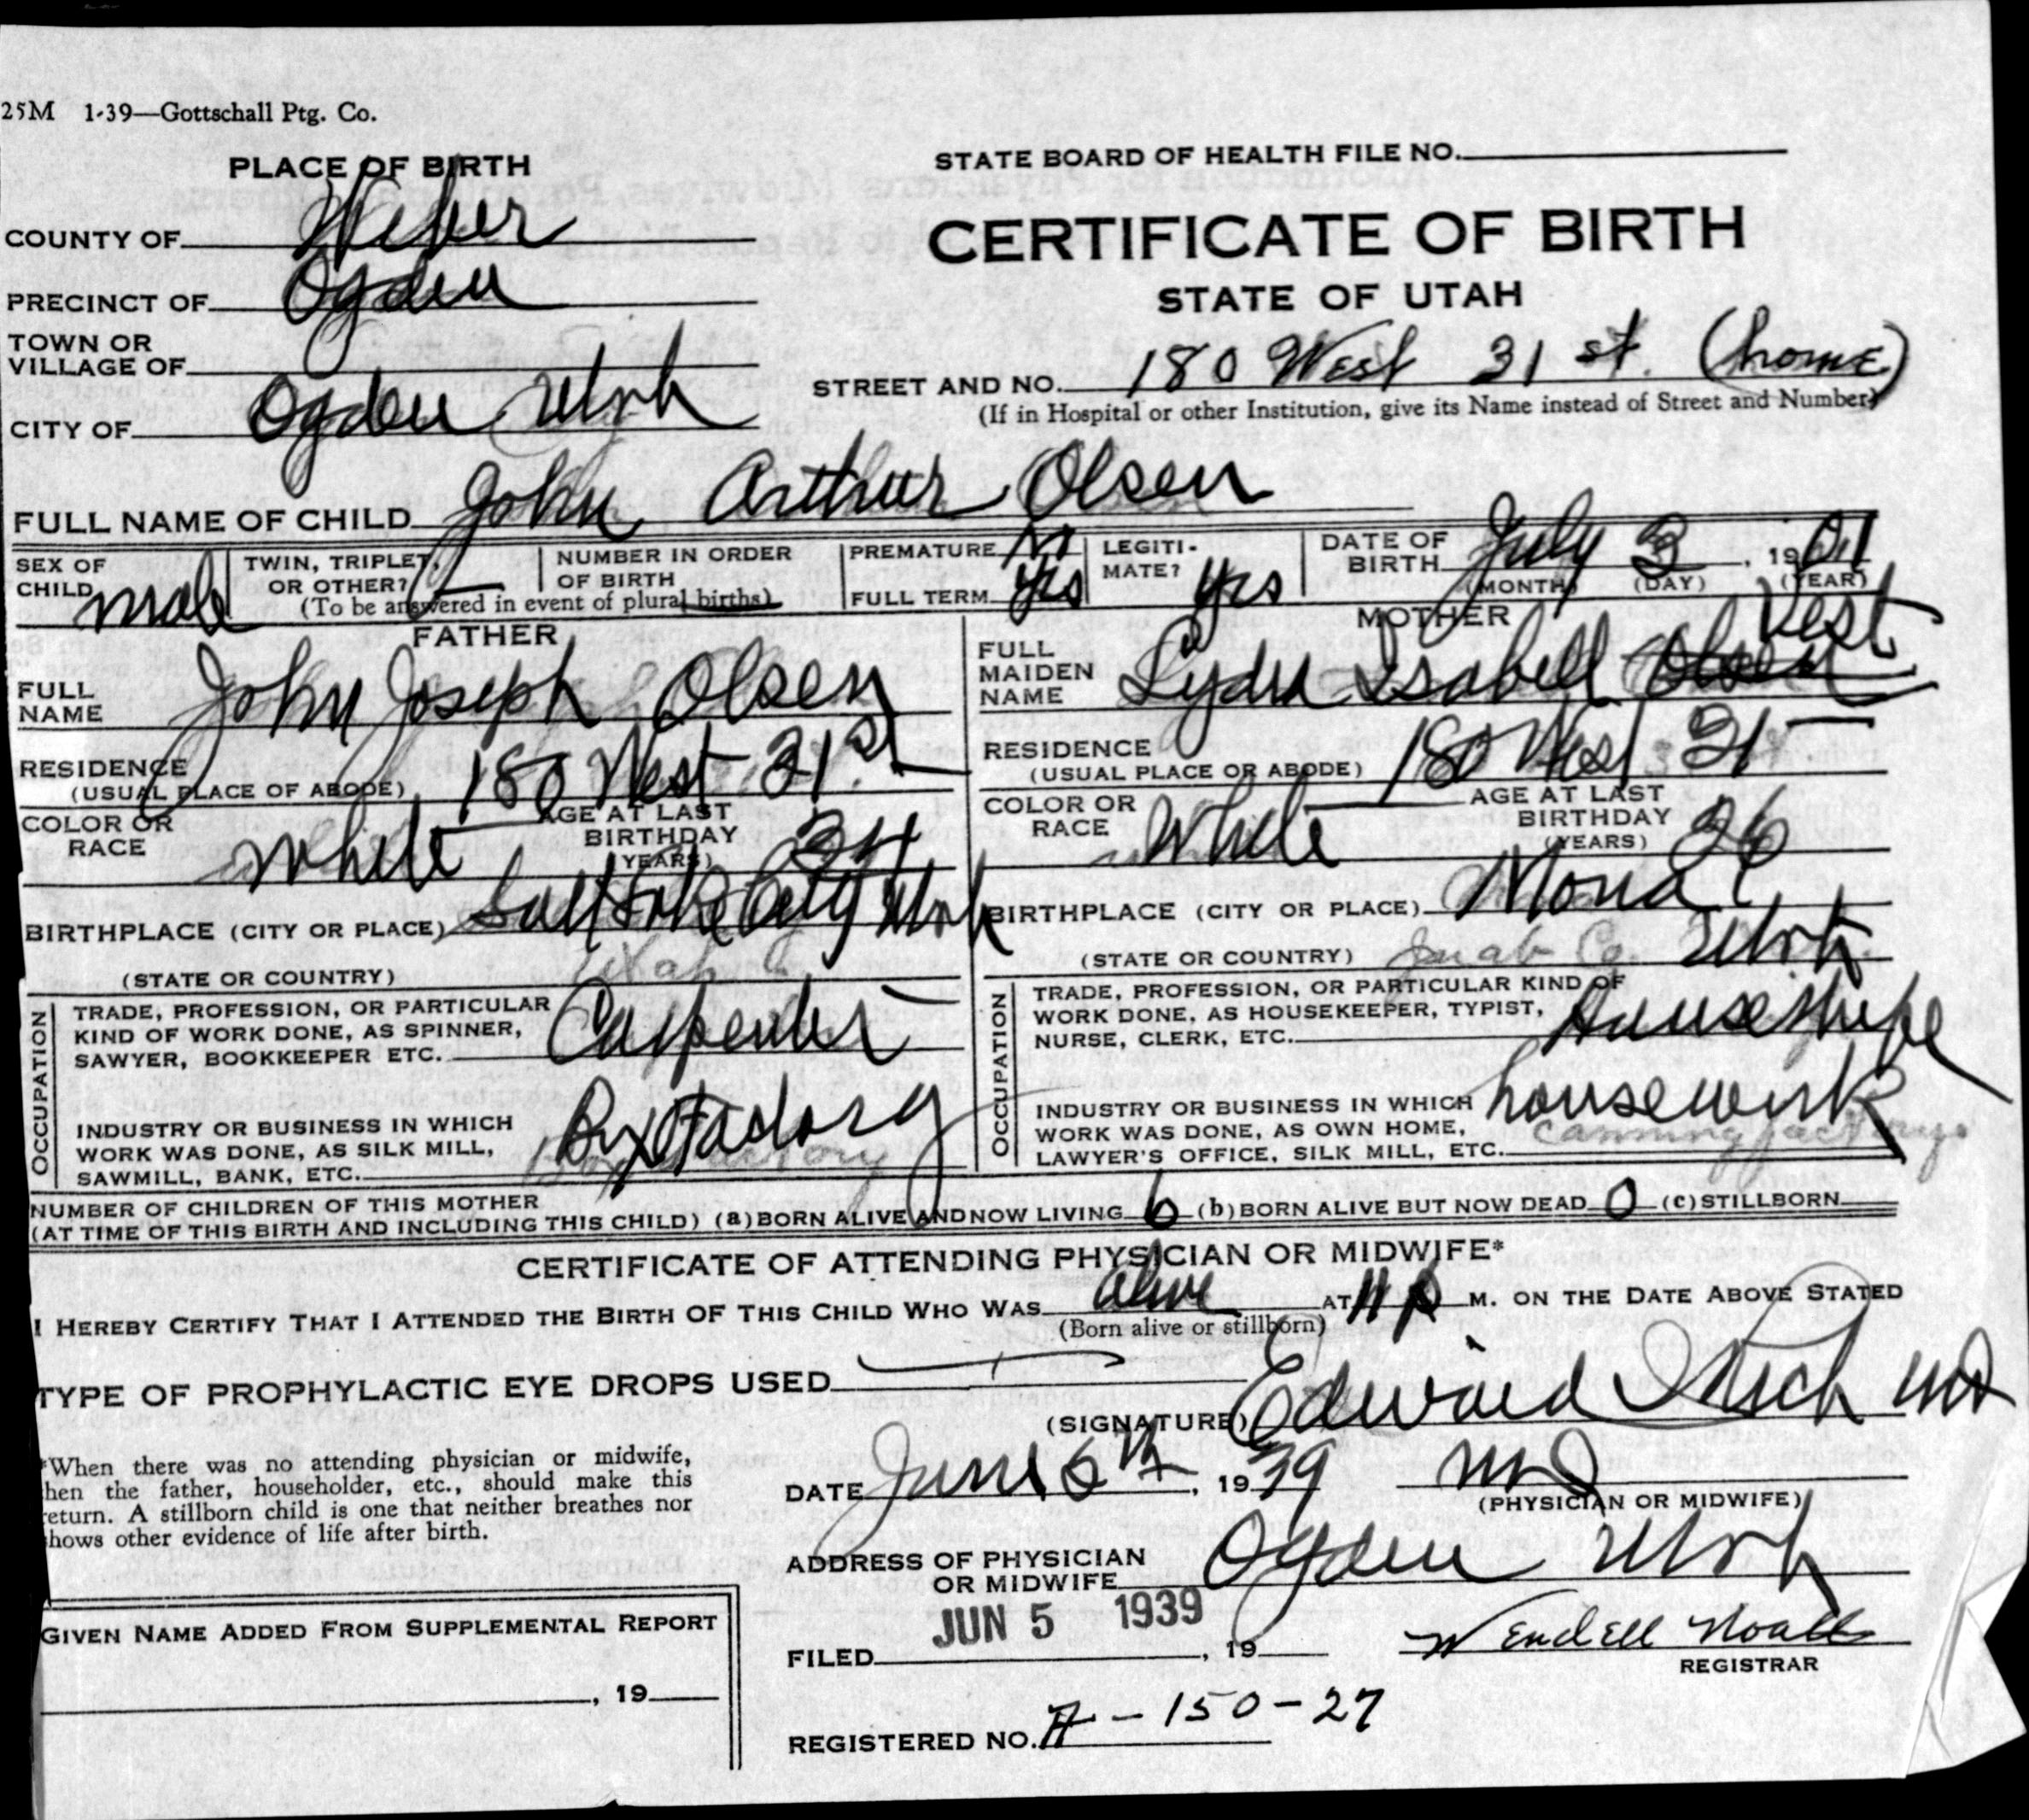 25M 1-39—Gottschall Ptg. Co.
PLACE OF BIRTH
STATE BOARD OF HEALTH FILE NO.
COUNTY OF Weber
CERTIFICATE OF BIRTH
PRECINCT OF Ogden
STATE OF UTAH
TOWN OR
VILLAGE OF
STREET AND NO. 180 West 31 st. (home)
(If in Hospital or other Institution, give its Name instead of Street and Number)
CITY OF Ogden Utah
FULL NAME OF CHILD John Arthur Olsen
SEX OF CHILD male
TWIN, TRIPLET, OR OTHER? —
NUMBER IN ORDER OF BIRTH
(To be answered in event of plural births)
PREMATURE
FULL TERM yes
LEGITI-MATE? yes
DATE OF BIRTH July 3, 1901
(MONTH) (DAY) (YEAR)
FATHER
FULL NAME John Joseph Olsen
RESIDENCE 180 West 31st
(USUAL PLACE OF ABODE)
COLOR OR RACE White
AGE AT LAST BIRTHDAY (YEARS) 34
BIRTHPLACE (CITY OR PLACE) Salt Lake City Utah
(STATE OR COUNTRY) Utah
OCCUPATION
TRADE, PROFESSION, OR PARTICULAR
KIND OF WORK DONE, AS SPINNER,
SAWYER, BOOKKEEPER ETC. Carpenter
INDUSTRY OR BUSINESS IN WHICH
WORK WAS DONE, AS SILK MILL,
SAWMILL, BANK, ETC. Box Factory
Box Factory
MOTHER
FULL MAIDEN NAME Lydia Isabell Olsen Vest
RESIDENCE 180 West 31
(USUAL PLACE OR ABODE)
COLOR OR RACE White
AGE AT LAST BIRTHDAY (YEARS) 26
BIRTHPLACE (CITY OR PLACE) Mona
(STATE OR COUNTRY) Juab Co. Utah
OCCUPATION
TRADE, PROFESSION, OR PARTICULAR KIND OF
WORK DONE, AS HOUSEKEEPER, TYPIST,
NURSE, CLERK, ETC. Housewife
INDUSTRY OR BUSINESS IN WHICH
WORK WAS DONE, AS OWN HOME,
LAWYER'S OFFICE, SILK MILL, ETC. housework
canning factory
NUMBER OF CHILDREN OF THIS MOTHER
(AT TIME OF THIS BIRTH AND INCLUDING THIS CHILD) (a) BORN ALIVE AND NOW LIVING 6 (b) BORN ALIVE BUT NOW DEAD 0 (c) STILLBORN
CERTIFICATE OF ATTENDING PHYSICIAN OR MIDWIFE*
I HEREBY CERTIFY THAT I ATTENDED THE BIRTH OF THIS CHILD WHO WAS alive AT 11 P M. ON THE DATE ABOVE STATED
(Born alive or stillborn)
TYPE OF PROPHYLACTIC EYE DROPS USED
(SIGNATURE) Edward I Rich MD
*When there was no attending physician or midwife,
hen the father, householder, etc., should make this
eturn. A stillborn child is one that neither breathes nor
hows other evidence of life after birth.
DATE June 6th, 1939 MD
(PHYSICIAN OR MIDWIFE)
ADDRESS OF PHYSICIAN
OR MIDWIFE Ogden Utah
GIVEN NAME ADDED FROM SUPPLEMENTAL REPORT
, 19
JUN 5 1939
FILED , 19
Wendell Noall
REGISTRAR
REGISTERED NO. A-150-27